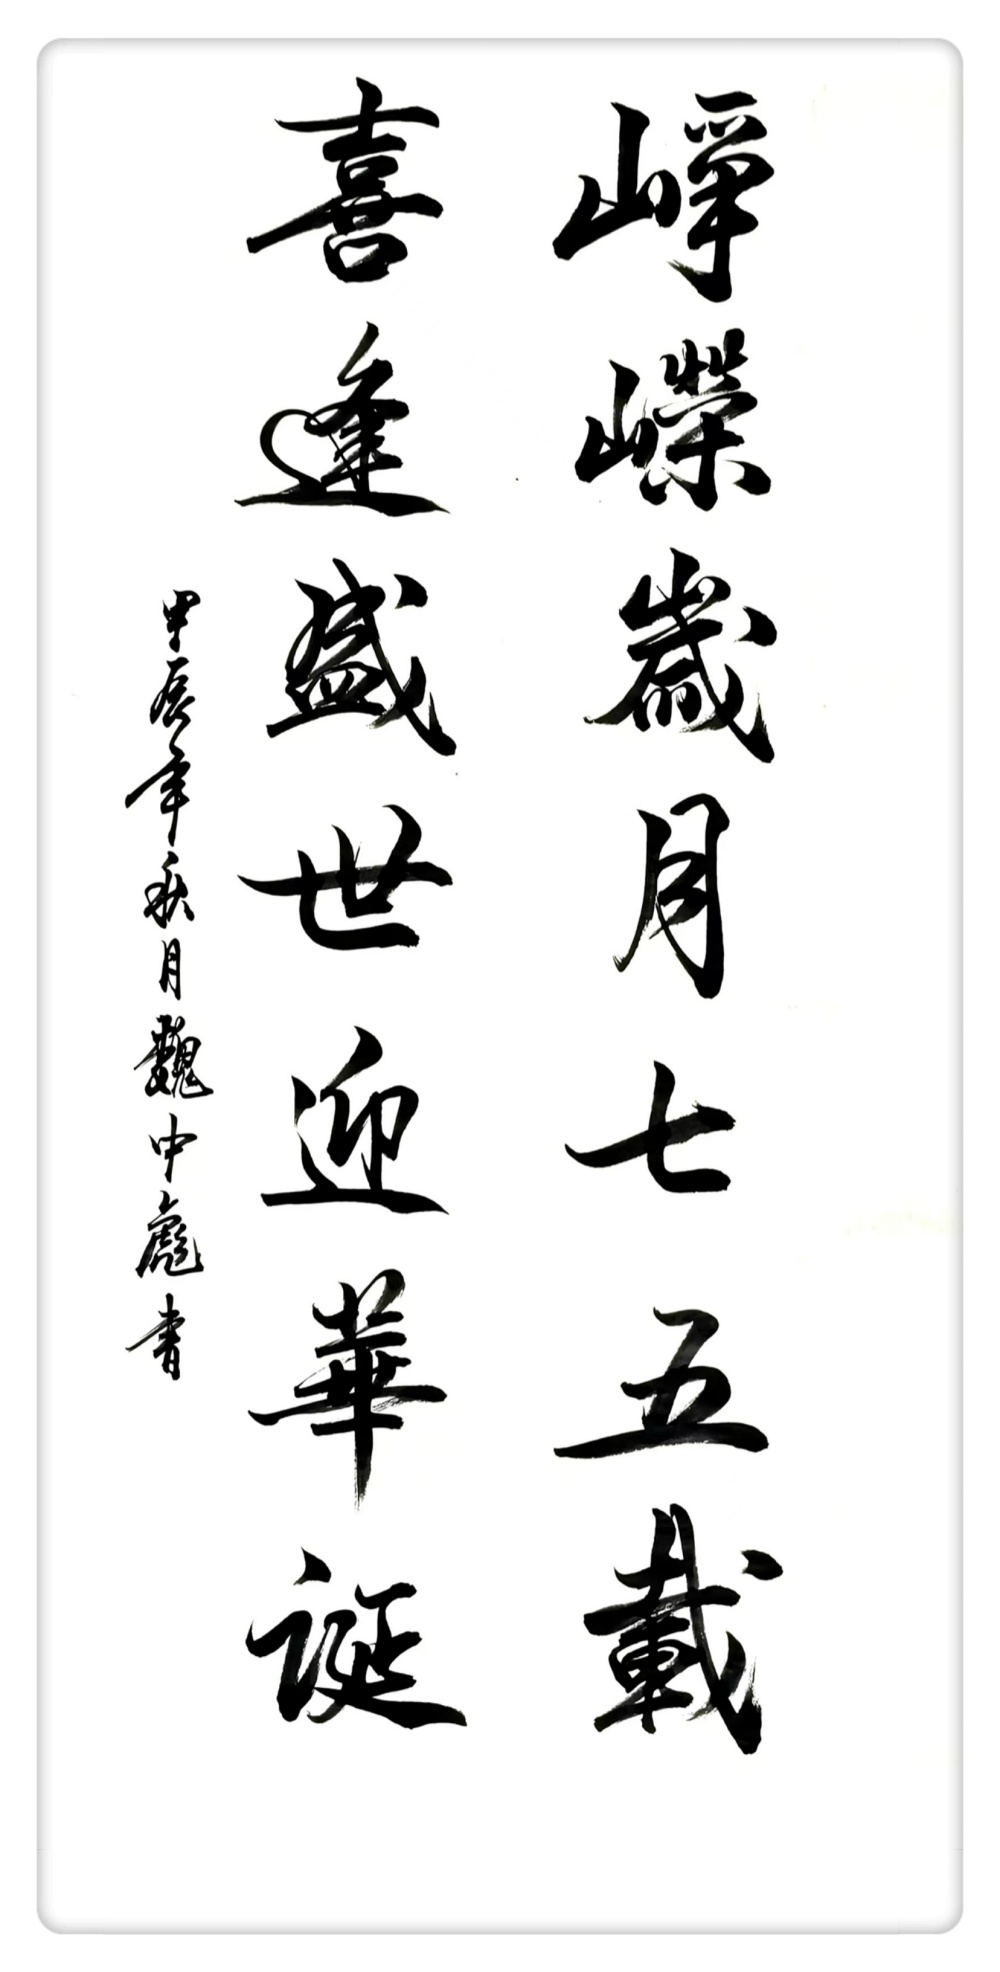 崢嶸歲月七五載
喜逢盛世迎華誕
甲辰年秋月魏中彪書